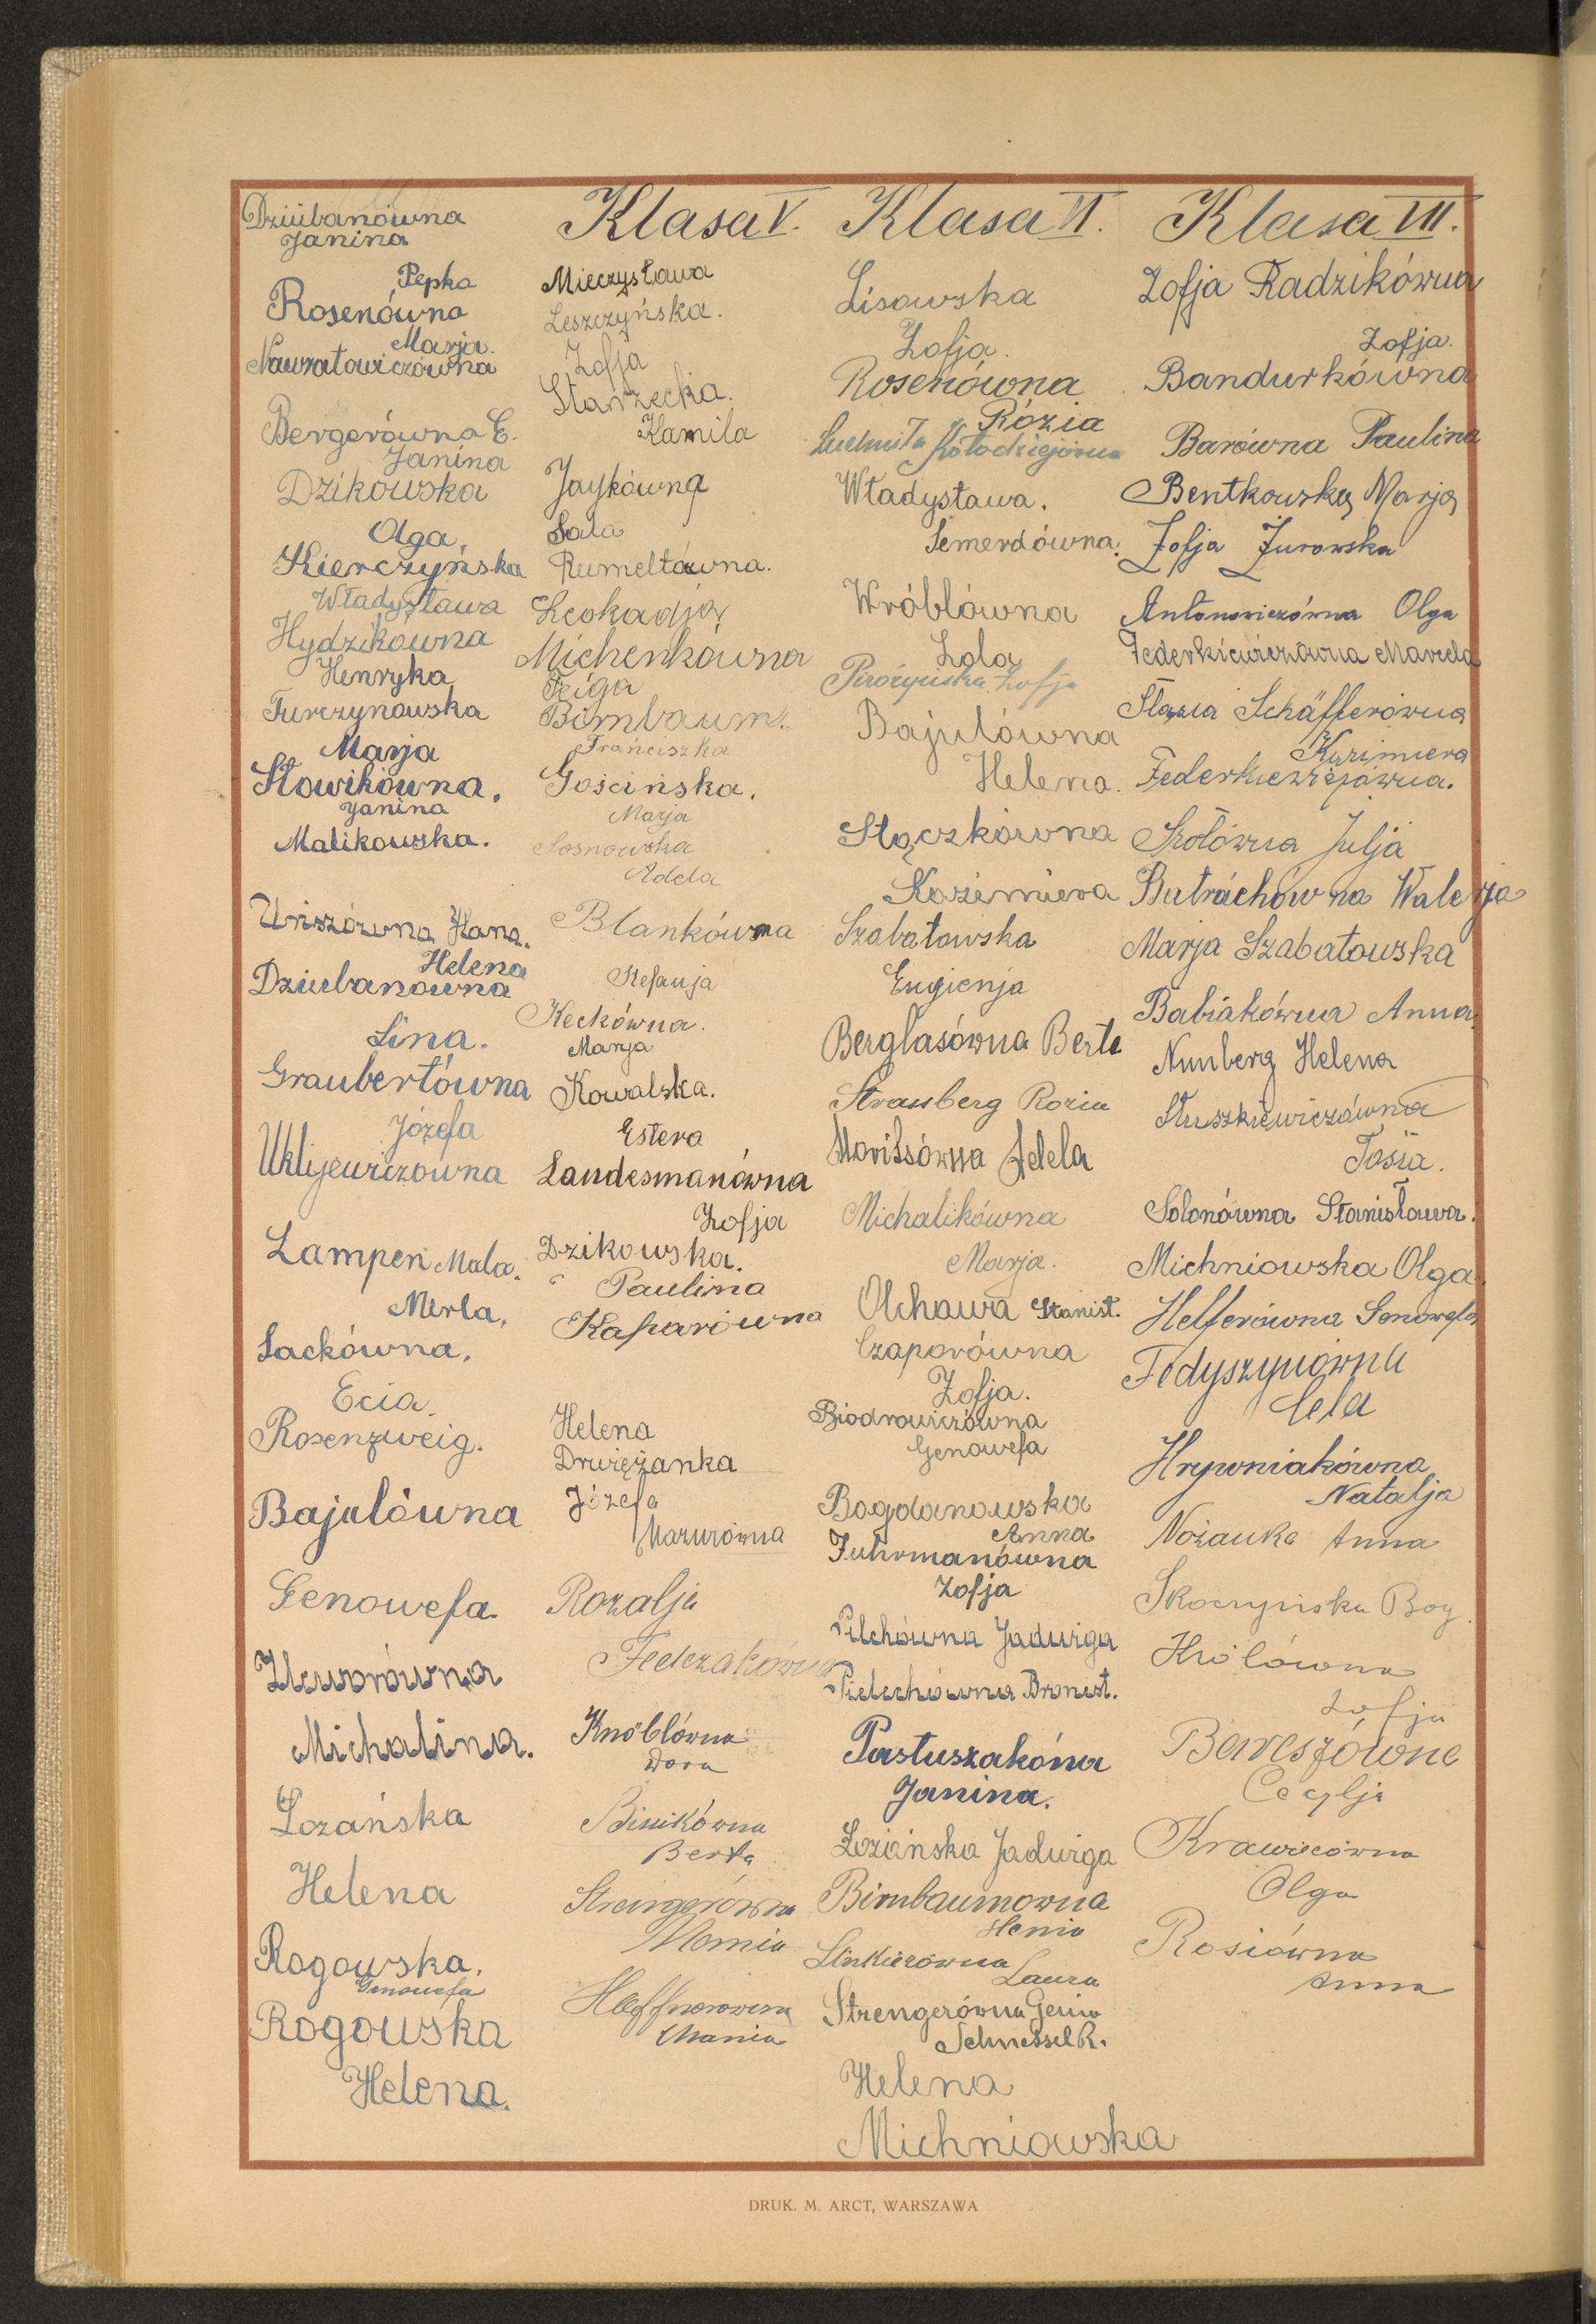 Dziubanówna
Janina
Pepka
Rosenówna
Marja.
Nawratowiczówna
Bergerówna E.
Janina
Dzikowska
Olga.
Kierczyńska
Władysława
Hydzikówna
Henryka
Turczynowska
Marja
Słowikówna.
Janina
Malikowska.
Uriszówna Hana.
Helena
Dziubanówna
Lina.
Graubertówna
Józefa
Uklijewiczówna
Lampen Mala.
Merla.
Sackówna.
Ecia.
Rosenzweig.
Bajulówna
Genowefa.
Michalina.
Łozańska
Helena
Rogowska.
Genowefa
Rogowska
Helena.
Klasa V.
Mieczysława
Leszczyńska.
Zofja
Starzecka.
Kamila
Jaykówna
Sala
Rumeltówna.
Leokadja
Michenkówna
Feiga
Birnbaum.
Franciszka
Gościńska.
Marja
Sosnowska
Adela
Blankówna
Stefanja
Keckówna.
Marja
Kowalska.
Estera
Landesmanówna
Zofja
Dzikowska.
Paulina
Kaparówna
Helena
Drwiężanka
Józefa
Mazurówna
Rozalja
Fedczakówna
Knoblówna
Dora
Binikówna
Berta
Strengerówna
Momia
Haffnerówna
Mania
Klasa VI.
Lisowska
Zofja.
Rosenówna
Rózia
Ludmiła Kołodziejówna
Władysława.
Semerdówna.
Wróblówna
Lola
Piróżyńska Zofja
Bajulówna
Helena.
Stączkówna
Kazimiera
Szabatowska
Eugienja
Berglasówna Berta
Strassberg Rozia
Moritsówna Adela
Michalikówna
Marja.
Olchawa Stanisł.
Czaporówna
Zofja.
Biodrowiczówna
Genowefa
Bogdanowska
Anna
Fuhrmanówna
Zofja
Pilchówna Jadwiga
Pielechówna Bronisł.
Pastuszakóna
Janina.
Łoziańska Jadwiga
Birnbaumowna
Henia
Linkierówna
Laura
Strengerówna Genia
Schnessel R.
Helena
Michniowska
Klasa VII.
Zofja Radzikówna
Zofja.
Bandurkówna
Barówna Paulina
Bentkowska Marja
Zofja Żurowska
Antonowiczówna Olga
Federkiewiczówna Marcela
Stasia Schäfferówna
Kazimiera
Federkiewiczówna.
Szołówna Julja
Butrachówna Walerja
Marja Szabatowska
Babiakówna Anna.
Nunberg Helena
Słuszkiewiczówna
Tosia.
Solonówna Stanisława.
Michniowska Olga.
Helferówna Genowefa
Fedyszynówna
Cela
Hrywniakówna
Natalja
Nożanka Anna
Skoczyńska Bog.
Królówna
Zofja
Bereszówna
Cecylja
Krawiecówna
Olga
Rosiówna
Anna
DRUK. M. ARCT, WARSZAWA